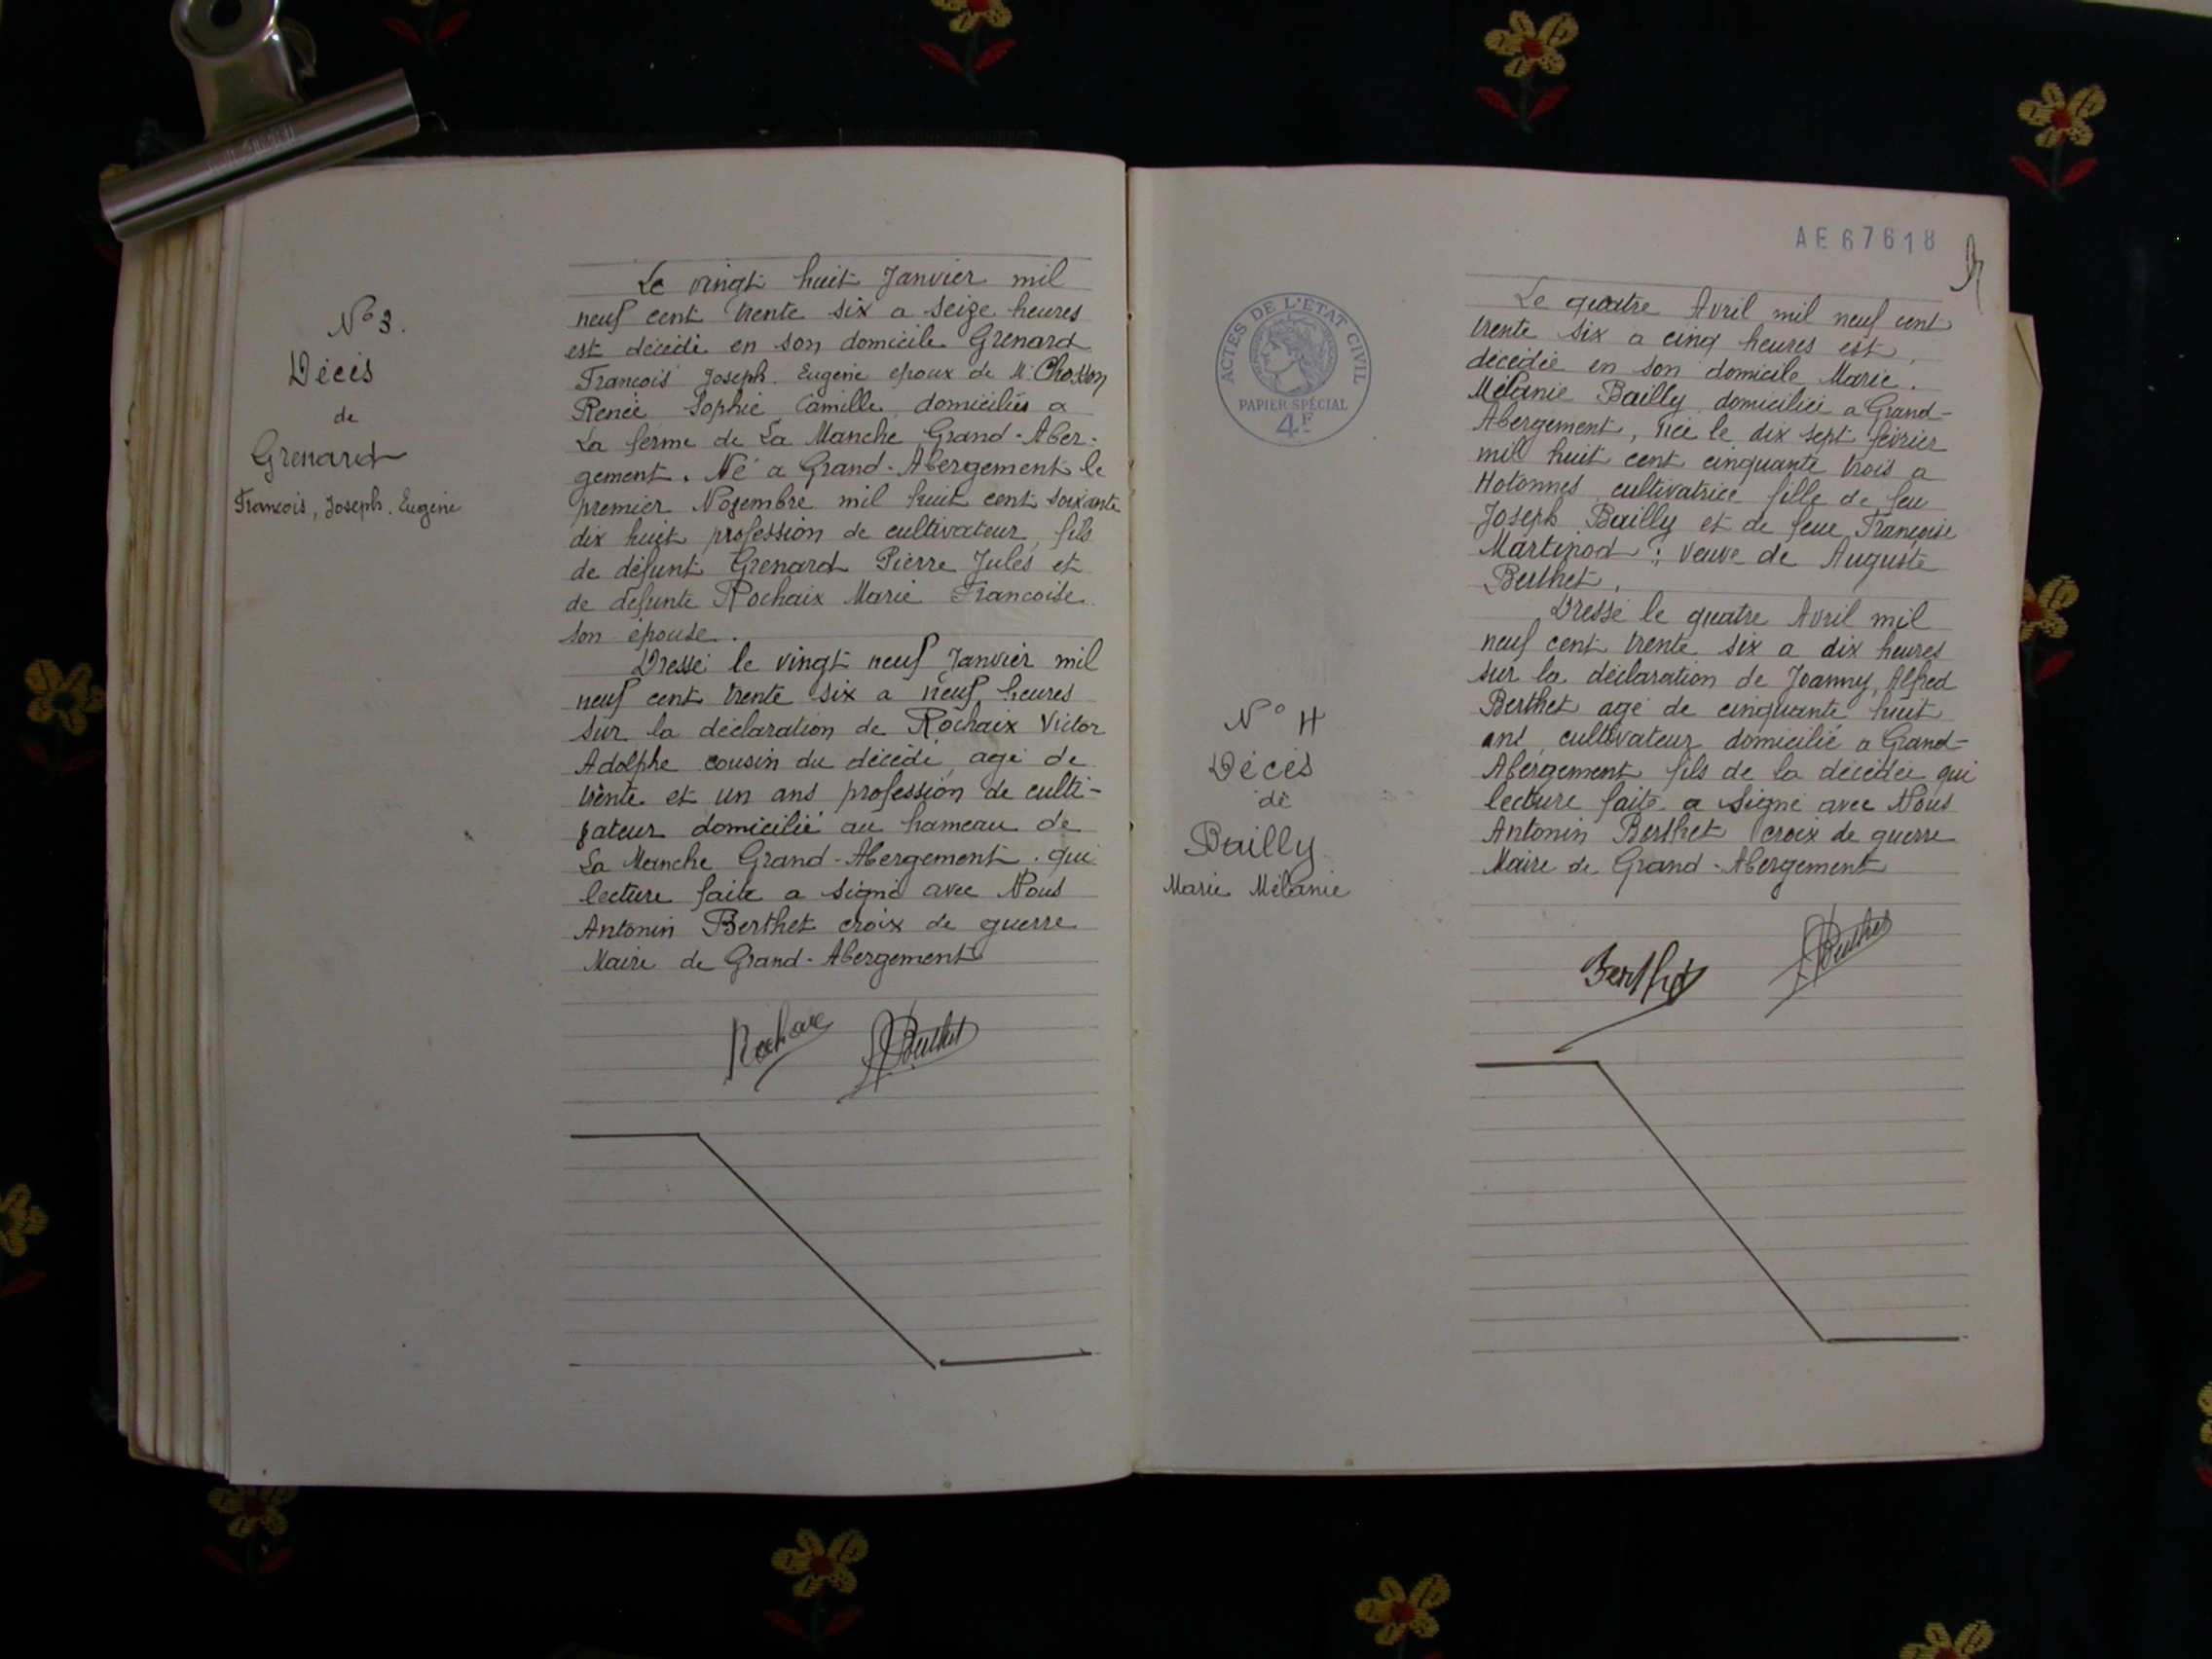 N° 3.
Décès
de
Grenard
François, Joseph. Eugène
Le vingt huit Janvier mil
neuf cent trente six a seize heures
est décédé en son domicile Grenard
François Joseph. Eugène époux de Chosson
Renée Sophie Camille domiciliés a
La ferme de La Manche Grand-Aber-
gement. Né a Grand-Abergement le
premier Novembre mil huit cent soixante
dix huit profession de cultivateur, fils
de défunt Grenard Pierre Jules et
de défunte Rochaix Marie Francoise
son épouse.
Dressé le vingt neuf Janvier mil
neuf cent trente six a neuf heures
sur la déclaration de Rochaix Victor
Adolphe cousin du décédé, agé de
trente et un ans profession de culti-
vateur domicilié au hameau de
La Manche Grand-Abergement. qui
lecture faite a signé avec Nous
Antonin Berthet croix de guerre
Maire de Grand-Abergement
Rochaix
Berthet
AE67618
ACTES DE L'ÉTAT CIVIL
PAPIER SPÉCIAL
4F
N° 4
Décès
de
Bailly
Marie Mélanie
Le quatre Avril mil neuf cent
trente six a cinq heures est
décédée en son domicile Marie.
Mélanie Bailly domiciliée a Grand-
Abergement, née le dix sept février
mil huit cent cinquante trois a
Hotonnes cultivatrice fille de feu
Joseph Bailly et de feue Françoise
Martinod ; veuve de Auguste
Berthet.
Dressé le quatre Avril mil
neuf cent trente six a dix heures
sur la déclaration de Joanny, Alfred
Berthet agé de cinquante huit
ans, cultivateur domicilié a Grand-
Abergement fils de la décédée qui
lecture faite a signé avec Nous
Antonin Berthet croix de guerre
Maire de Grand-Abergement
Berthet
Berthet